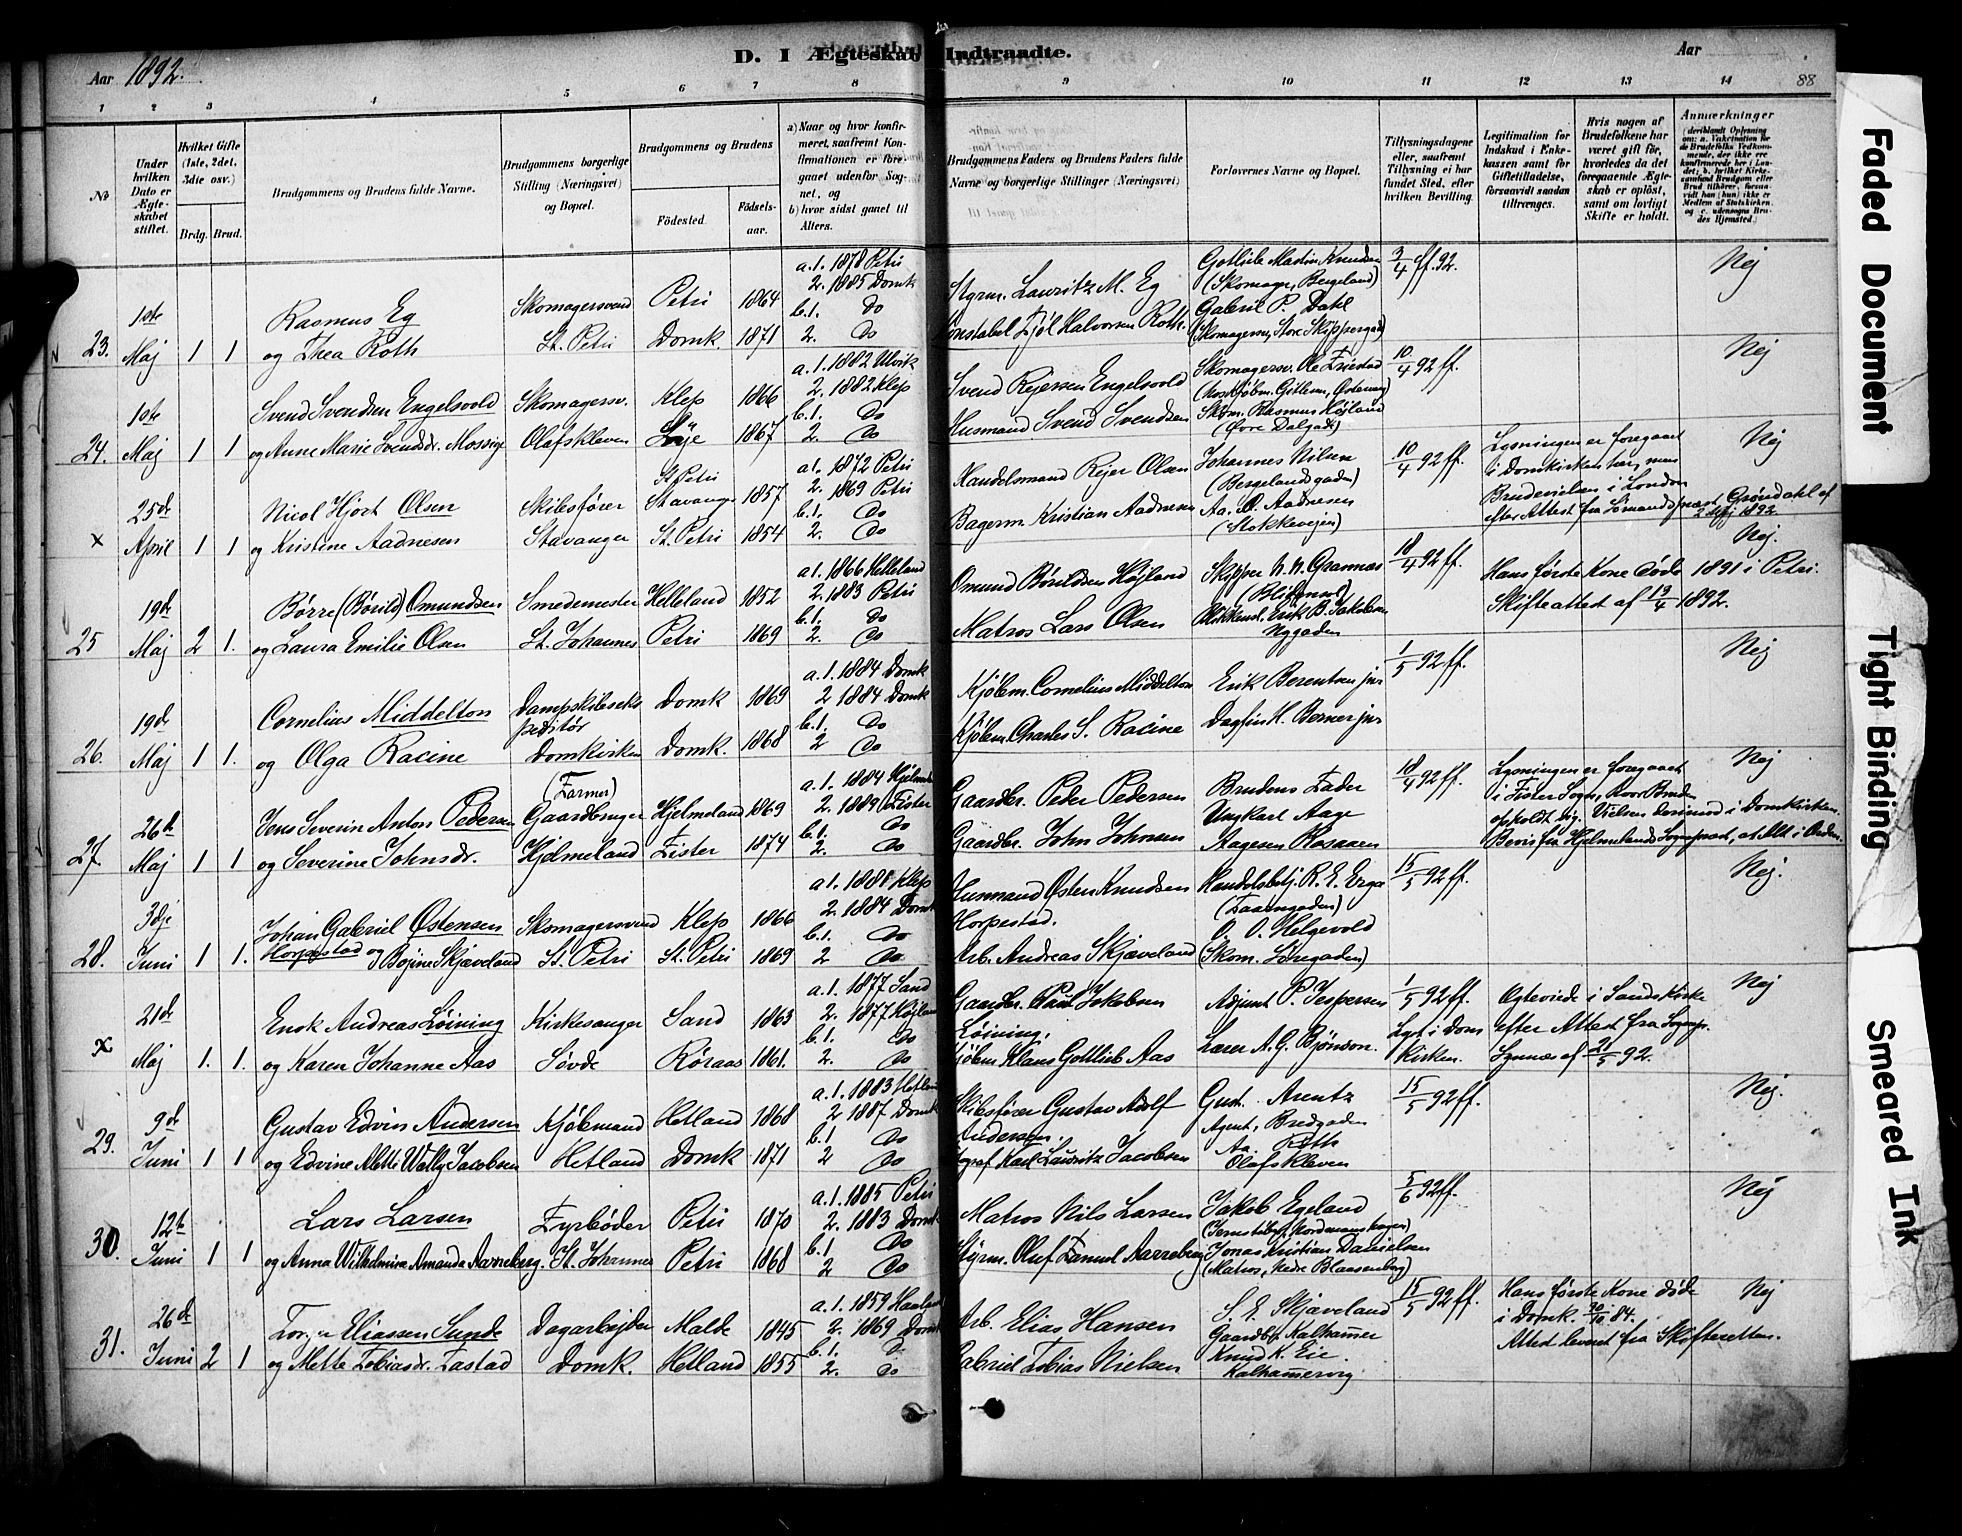 D. I Ægteskab Indtraadte.
Aar 1892.
Aar
88
1 2 3 4 5 6 7 8 9 10 11 12 13 14
№
Under hvilken Dato er Ægteskabet stiftet.
Hvilket Gifte (1ste, 2det, 3die osv.)
Brdg. Brud.
Brudgommens og Brudens fulde Navne.
Brudgommens borgerlige Stilling (Næringsvei) og Bopæl.
Brudgommens og Brudens
Fødested. Fødsels-aar.
a) Naar og hvor konfirmeret, saafremt Konfirmationen er foregaaet udenfor Sognet, og
b) hvor sidst gaaet til Alters.
Brudgommens Faders og Brudens Faders fulde Navne og borgerlige Stillinger (Næringsvei)
Forlovernes Navne og Bopæl.
Tillysningsdagene eller, saafremt Tillysning ei har fundet Sted, efter hvilken Bevilling.
Legitimation for Indskud i Enkekassen samt for Giftetilladelse, forsaavidt saadan tiltrænges.
Hvis nogen af Brudefolkene har været gift før, hvorledes da det foregaaende Ægteskab er opløst, samt om lovligt Skifte er holdt.
Anmærkninger
23. 1ste Maj 1 1
Rasmus Eg
og Thea Roth
Skomagersvend
St. Petri
Petri 1864
Domk. 1871
a. 1. 1878 Petri
2. 1885 Domk
b. 1. Do
2. Do
Styrm. Lauritz M. Eg
Gotlieb Martin Knudsen
(Skomager, Bergeland)
Gabriel P. Dahl
3/4 ff. 92.
Nej
24. 1ste Maj 1 1
Svend Svendsen Engelsvold
og Anne Marie Svendsdr. Mossige
Skomagersv.
Olafskleven
Klep 1866
Lye 1867
a. 1. 1882
2. 1882 Klep
b. 1. Do
2. Do
Svend Rejersen Engelsvold
Husmand Svend Svendsen
Skomagersv. Ole Friestad
Skom. Rasmus Højland
(Øvre Dalgade)
10/4 92 ff.
Nej
x 25de April 1 1
Nicol Hjort Olsen
og Kristine Aadnesen
Skibsfører
Stavanger
St. Petri
Stavanger 1857
St. Petri 1854
a 1. 1872 Petri
2. 1869 Petri
b. 1. Do
2. Do
Handelsmand Rejer Olsen
Bagerm Kristian Aadnesen
Johannes Nilsen
(Bergelandsgaden)
Aa. O. Aadnesen
(Stokkevejen)
10/4 92 ff.
Lysningen er foregaaet
i Domkirken her, men
Brudevielsen i London
efter Attest fra Sømandspræst Grøndahl af
Nej
25 19de Maj 2 1.
Børre (Børild) Omundsen
og Laura Emilie Olsen
Smedemester
St. Johannes
Helleland 1852
Petri 1869
a 1. 1866 Helleland
2. 1883 Petri
b. 1. Do
2. Do
Omund Børildsen Højland
Matros Lars Olsen
Skipper N. N. Grannæs
Blikkensl. Erik B. Jakobsen
Nygaden
18/4 92 ff.
Hans første Kone døde 1891 i Petri.
Skifteattest af 19/4 1892.
Nej.
26. 19de Maj 1 1.
Cornelius Middelton
og Olga Racine
Dampskibseks
peditør
Domkirken
Domk 1869
Domk. 1868
a. 1. 1884 Domk
2 1884 Domk
b. 1. Do
2 Do
Kjøbm. Cornelius Middelton
Kjøbm. Charles S. Racine
Erik Berentsen jnr
Dagfin H. Berner jnr
1/5 92 ff.
Nej
27. 26de Maj 1 1
Jens Severin Anton Pedersen
og Severine Johnsdr.
(Farmer)
Gaardbruger
Hjelmeland
Hjelmeland 1869
Fister 1874
a. 1. 1884 Hjelmel
2. 1889 Fister
b. 1. Do
2. Do
Gaardbr. Peder Pedersen
Gaardbr. John Johnsen
Brudens Fader
Ungkarl Aage
Aagesen Rosaaen
18/4 92 ff.
Lysningen er foregaaet
i Fister Sogn, hvor Bruden
opholdt sig. Vielsen derimod i Domkirken.
Bevis fra Hjelmelands Sognepræst, at Alt i Orden.
Nej
28. 3dje Juni 1 1.
Johan Gabriel Østensen
Horpestad og Bojine Skjæveland
Skomagersvend
St. Petri
Klep 1866
St. Petri 1869
a 1. 1880 Klep
2. 1884 Domk
b. 1. Do
2 Do
Husmand Østen Knudsen
Horpestad.
Arb. Andreas Skjæveland
Handelsbetj. R. E. Erga
O. O. Helgevold
(Skom. Storegaden)
15/5 92 ff.
Nej.
x 21de Maj 1. 1.
Enok Andreas Løining
og Karen Johanne Aas
Kirkesanger
Søvde
Sand 1863
Røraas 1861.
a. 1. 1877 Sand
2. 1877
b. 1. Do
2. Do
Gaardbr. Paul Jakobsen
Løining.
Kjøbm. Klaus Gottlieb Aas
Adjunkt P. Jespersen
Lærer A. G. Bjönson.
1/5 92 ff.
Lyst i Dom
Kirken.
Ægteviede i Sands Kirke
efter Attest fra Sognepr.
Lynnæs af 21/5 92.
Nej
29. 9de Juni 1 1
Gustav Edvin Andersen
og Edvine Mette Wally Jacobsen
Kjøbmand
Hetland
Hetland 1868
Domk 1871
a. 1. 1883 Hetland
2 1887 Domk
b. 1 Do
2 Do
Skibsfører Gustav Adolf
Andersen.
Karl Lauritz Jacobsen
Gust. Arentz
Agent, Bredgaden
Aa. Roth
Olafskleven
15/5 92 ff.
Nej.
30. 12te Juni 1 1
Lars Larsen
og Anna Wilhelmine Amanda Aarreberg.
Fyrbøder
St. Johannes
Petri 1870
Petri 1868
a. 1. 1885 Petri
2. 1883 Domk
b. 1 Do
2 Do
Matros Nils Larsen
Styrm. Oluf Samuel Aarreberg
Jakob Egeland
Jonas Kristian Danielsen
(Matros, Nedre Blaasenborg)
5/6 92 ff.
Nej
31. 26de Juni 2 1
Eliassen Sunde
og Mette Tobiasdr. Tastad
Dagarbejder
Domk.
Malde 1845
Hetland 1855
a. 1. 1859 Haaland
2. 1869 Domk
b. 1. D
2. Do
Arb. Elias Hansen
Gabriel Tobias Nielsen
S. E. Skjæveland
Gaardbr Kalhammer
Knud K. Eie.
Kalhammervig
15/5 92 ff.
Hans første Kone døde
i Domk. 20/10 84.
Attest leveret fra Skifteretten.
Nej
Faded Document
Tight Binding
Smeared Ink